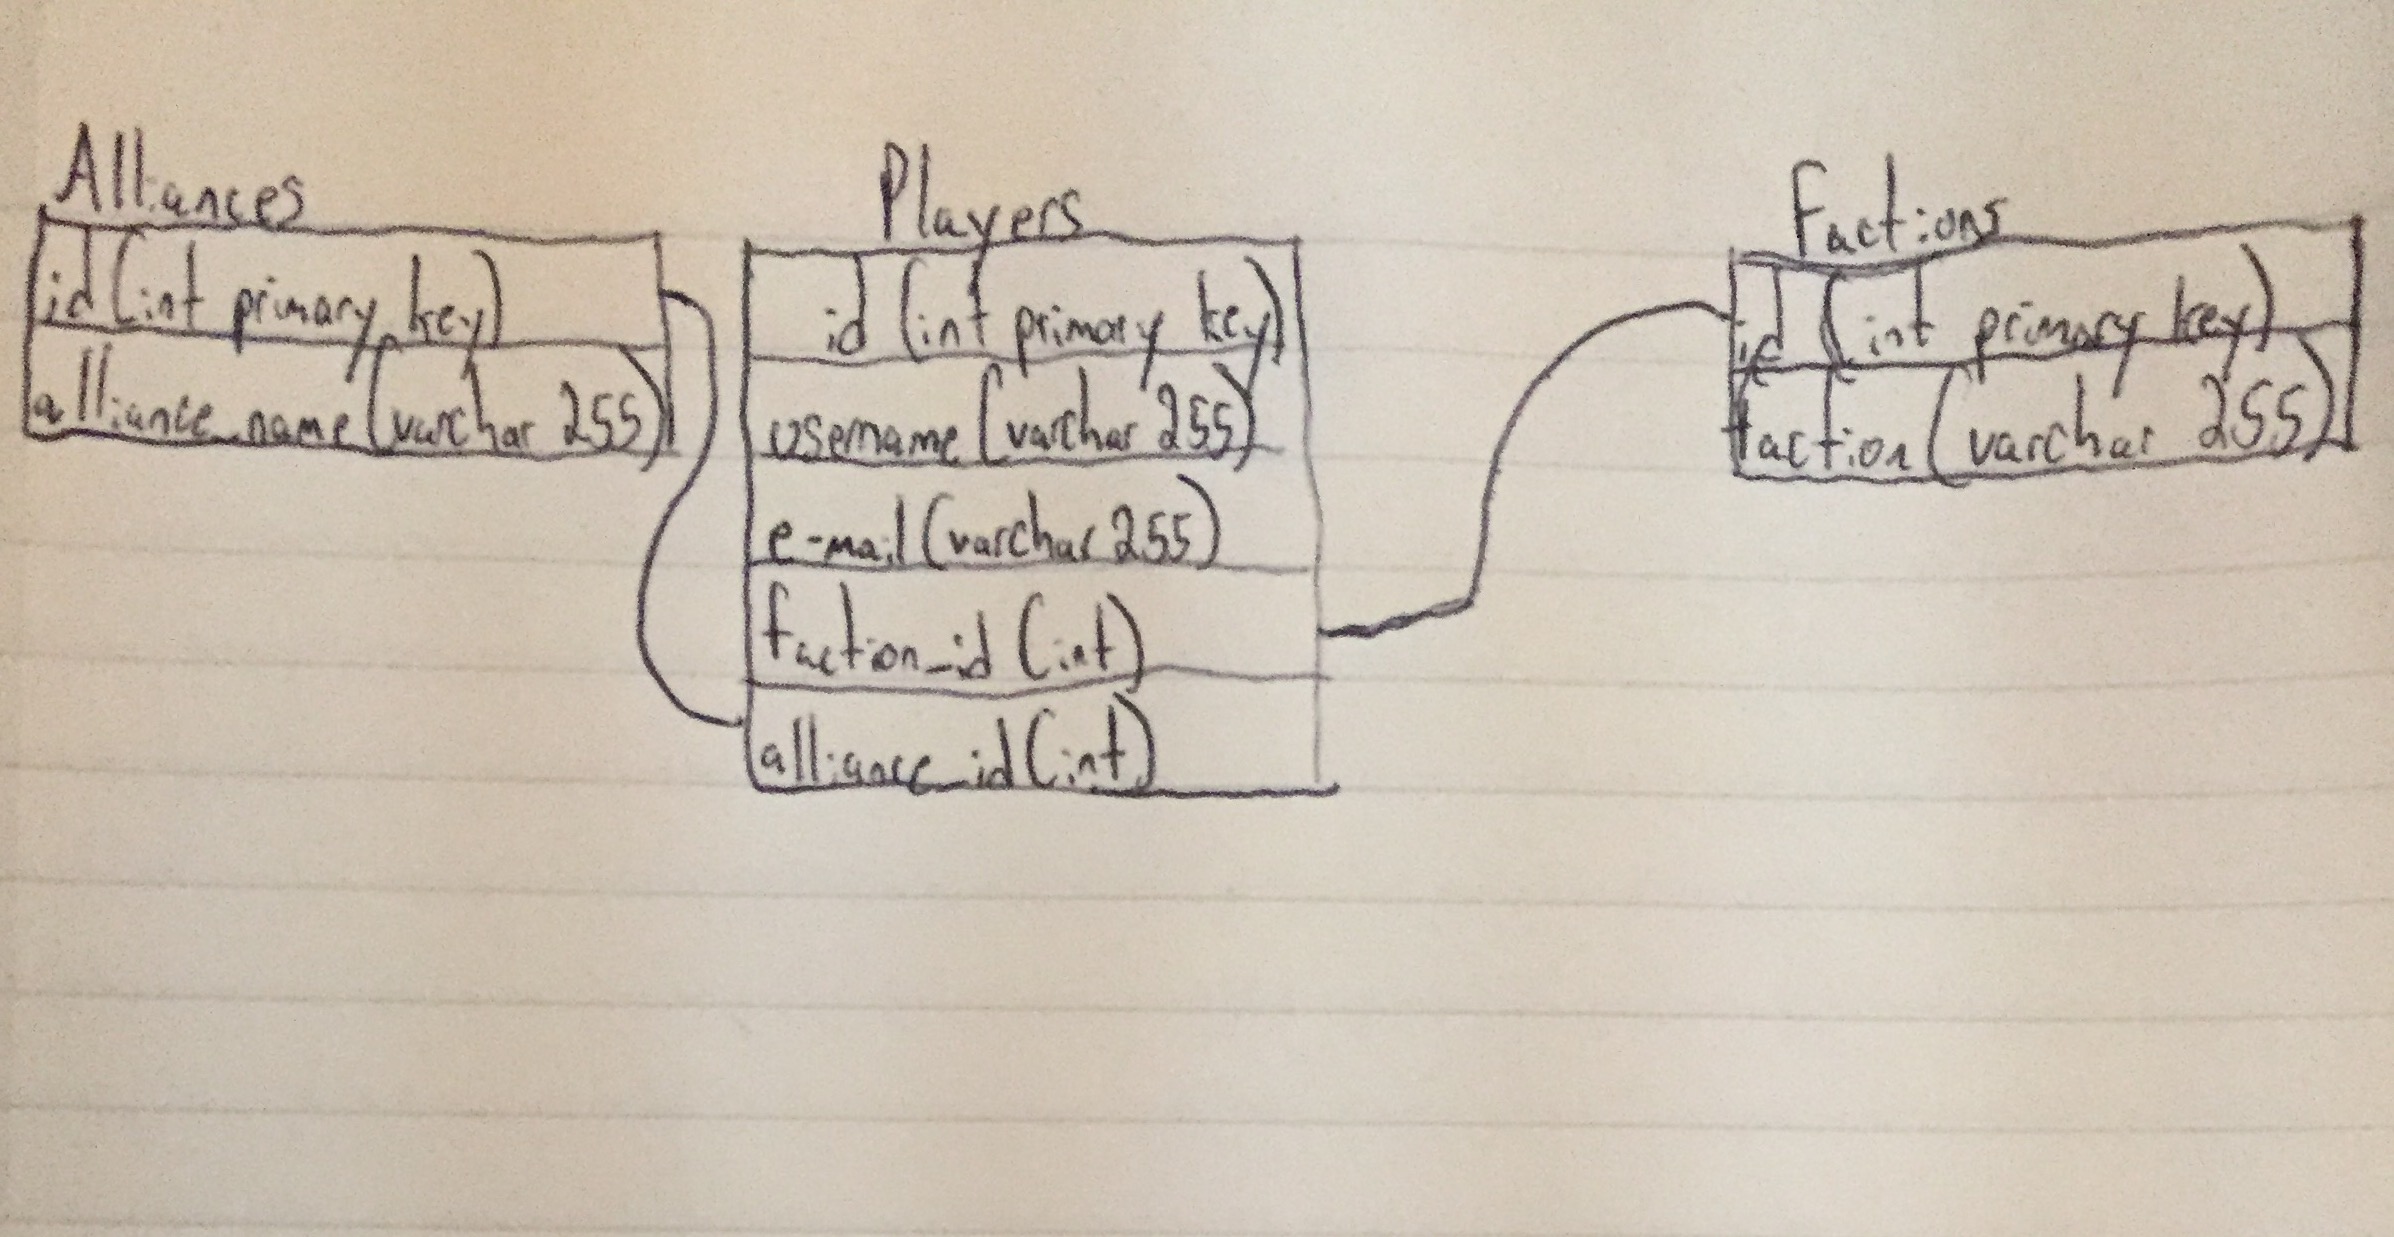 Alliances
id (int primary key)
alliance_name (varchar 255)
Players
id (int primary key)
username (varchar 255)
e-mail (varchar 255)
faction_id (int)
alliance_id (int)
Factions
id (int primary key)
faction (varchar 255)